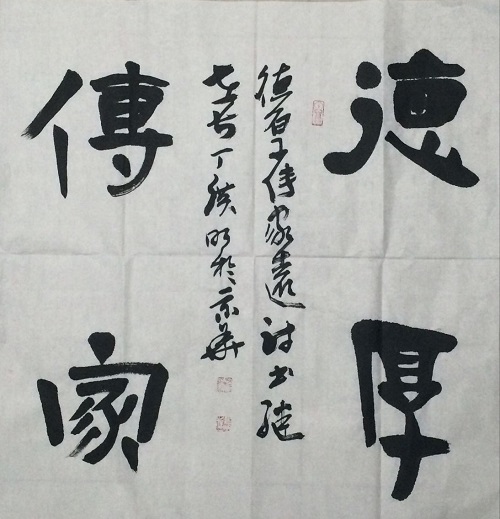 德厚
德厚傳家遠詩書繼
世長丁明於京華
傳家